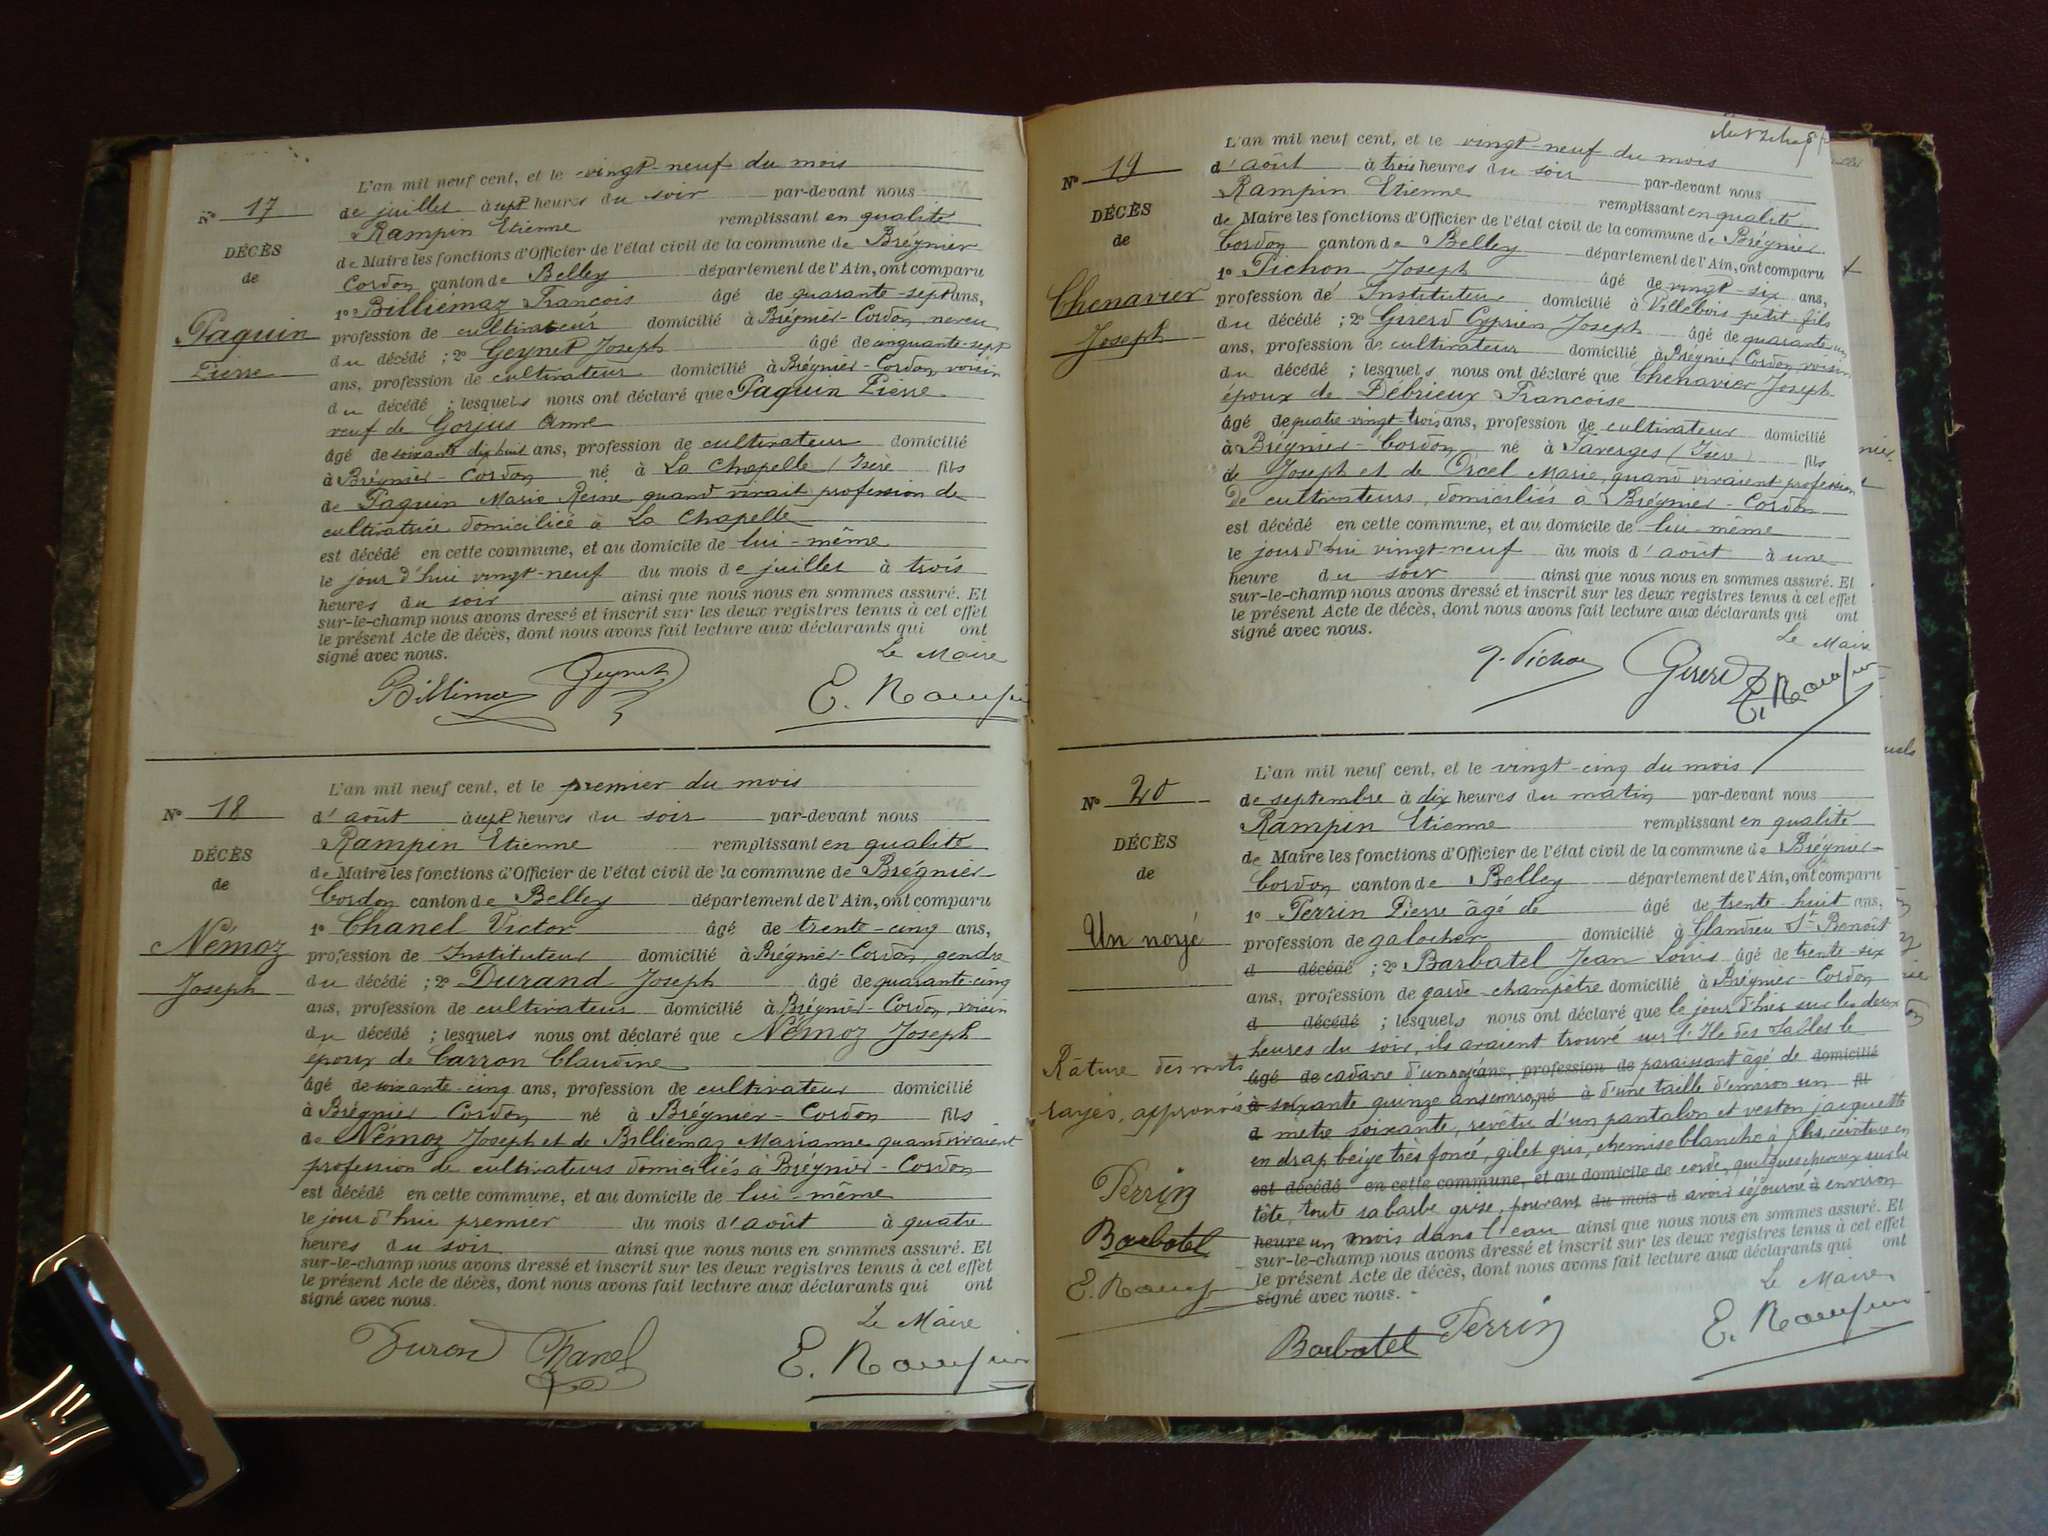 N° 17
DÉCÈS
de
Paquin
Pierre
L'an mil neuf cent, et le vingt-neuf du mois
de juillet à sept heures du soir par-devant nous
Rampin Etienne remplissant en qualité
de Maire les fonctions d'Officier de l'état civil de la commune de Brégnier
Cordon canton de Belley département de l'Ain, ont comparu
1° Billiemaz Francois âgé de quarante-sept ans,
profession de cultivateur domicilié à Brégnier-Cordon, neveu
du décédé ; 2° Geynet Joseph âgé de cinquante-sept
ans, profession de cultivateur domicilié à Brégnier-Cordon, voisin
du décédé ; lesquels nous ont déclaré que Paquin Pierre
veuf de Gorjus Anne
âgé de soixante dix huit ans, profession de cultivateur domicilié
à Brégnier-Cordon né à La Chapelle (Isère fils
de Paquin Marie Reine quand vivait profession de
cultivatrice domiciliée à La Chapelle
est décédé en cette commune, et au domicile de lui-même
le jour d'hui vingt-neuf du mois de juillet à trois
heures du soir ainsi que nous nous en sommes assuré. Et
sur-le-champ nous avons dressé et inscrit sur les deux registres tenus à cet effet
le présent Acte de décès, dont nous avons fait lecture aux déclarants qui ont
signé avec nous.
Le Maire
Geynet E. Rampin
N° 18
DÉCÈS
de
Némoz
Joseph
L'an mil neuf cent, et le premier du mois
d'août à sept heures du soir par-devant nous
Rampin Etienne remplissant en qualité
de Maire les fonctions d'Officier de l'état civil de la commune de Brégnier-
Cordon canton de Belley département de l'Ain, ont comparu
1° Chanel Victor âgé de trente-cinq ans,
profession de Instituteur domicilié à Brégnier-Cordon, gendre
du décédé ; 2° Durand Joseph âgé de quarante-cinq
ans, profession de cultivateur domicilié à Brégnier-Cordon, voisin
du décédé ; lesquels nous ont déclaré que Némoz Joseph
époux de Carron Claudine
âgé de soixante-cinq ans, profession de cultivateur domicilié
à Brégnier-Cordon né à Brégnier-Cordon fils
de Némoz Joseph et de Billiemaz Marianne quand vivaient
profession de cultivateurs domiciliés à Brégnier-Cordon
est décédé en cette commune, et au domicile de lui-même
le jour d'hui premier du mois d'août à quatre
heures du soir ainsi que nous nous en sommes assuré. Et
sur-le-champ nous avons dressé et inscrit sur les deux registres tenus à cet effet
le présent Acte de décès, dont nous avons fait lecture aux déclarants qui ont
signé avec nous.
Le Maire
Durand Chanel E. Rampin
N° 19
DÉCÈS
de
Chenavier
Joseph
L'an mil neuf cent, et le vingt-neuf du mois
d'août à trois heures du soir par-devant nous
Rampin Etienne remplissant en qualité
de Maire les fonctions d'Officier de l'état civil de la commune de Brégnier
Cordon canton de Belley département de l'Ain, ont comparu
1° Pichon Joseph âgé de vingt-six ans,
profession de Instituteur domicilié à Villebois petit-fils
du décédé ; 2° Gererd Cyprien Joseph âgé de quarante-un
ans, profession de cultivateur domicilié à Brégnier-Cordon, voisin
du décédé ; lesquels nous ont déclaré que Chenavier Joseph
époux de Débrieux Francoise
âgé de quatre vingt-trois ans, profession de cultivateur domicilié
à Brégnier-Cordon né à Faverges (Isère) fils
de Joseph et de Orcel Marie, quand vivaient profession
de cultivateurs, domiciliés à Brégnier-Cordon
est décédé en cette commune, et au domicile de lui-même
le jour d'hui vingt-neuf du mois d'août à une
heure du soir ainsi que nous nous en sommes assuré. Et
sur-le-champ nous avons dressé et inscrit sur les deux registres tenus à cet effet
le présent Acte de décès, dont nous avons fait lecture aux déclarants qui ont
signé avec nous.
Le Maire
J. Pichon Gererd E. Rampin
N° 20
DÉCÈS
de
Un noyé
L'an mil neuf cent, et le vingt-cinq du mois
de septembre à dix heures du matin par-devant nous
Rampin Etienne remplissant en qualité
de Maire les fonctions d'Officier de l'état civil de la commune de Brégnier-
Cordon canton de Belley département de l'Ain, ont comparu
1° Perrin Pierre âgé de âgé de trente-huit ans,
profession de galocher domicilié à Glandieu St Benoît
d décédé ; 2° Barbatel Jean Louis âgé de trente-six
ans, profession de garde-champêtre domicilié à Brégnier-Cordon
d décédé ; lesquels nous ont déclaré que le jour d'hier sur les deux
heures du soir, ils avaient trouvé sur l'Ile des Sables le
âgé de cadavre d'un noyé ans, profession de paraissant âgé de domicilié
à soixante quinze ans environ, né à d'une taille d'environ un fil
d mètre soixante, revêtu d'un pantalon et veston jaquette
en drap beige très foncé, gilet gris, chemise blanche à plis, ceinture en
est décédé en cette commune, et au domicile de corde, quelques cheveux sur la
tête, toute sa barbe grise, pouvant du mois d avoir séjourné à environ
heure un mois dans l'eau ainsi que nous nous en sommes assuré. Et
sur-le-champ nous avons dressé et inscrit sur les deux registres tenus à cet effet
le présent Acte de décès, dont nous avons fait lecture aux déclarants qui ont
signé avec nous.
Râture des mots
rayés, approuvés
Perrin
Barbatel
E. Rampin
Le Maire
Barbatel Perrin E. Rampin